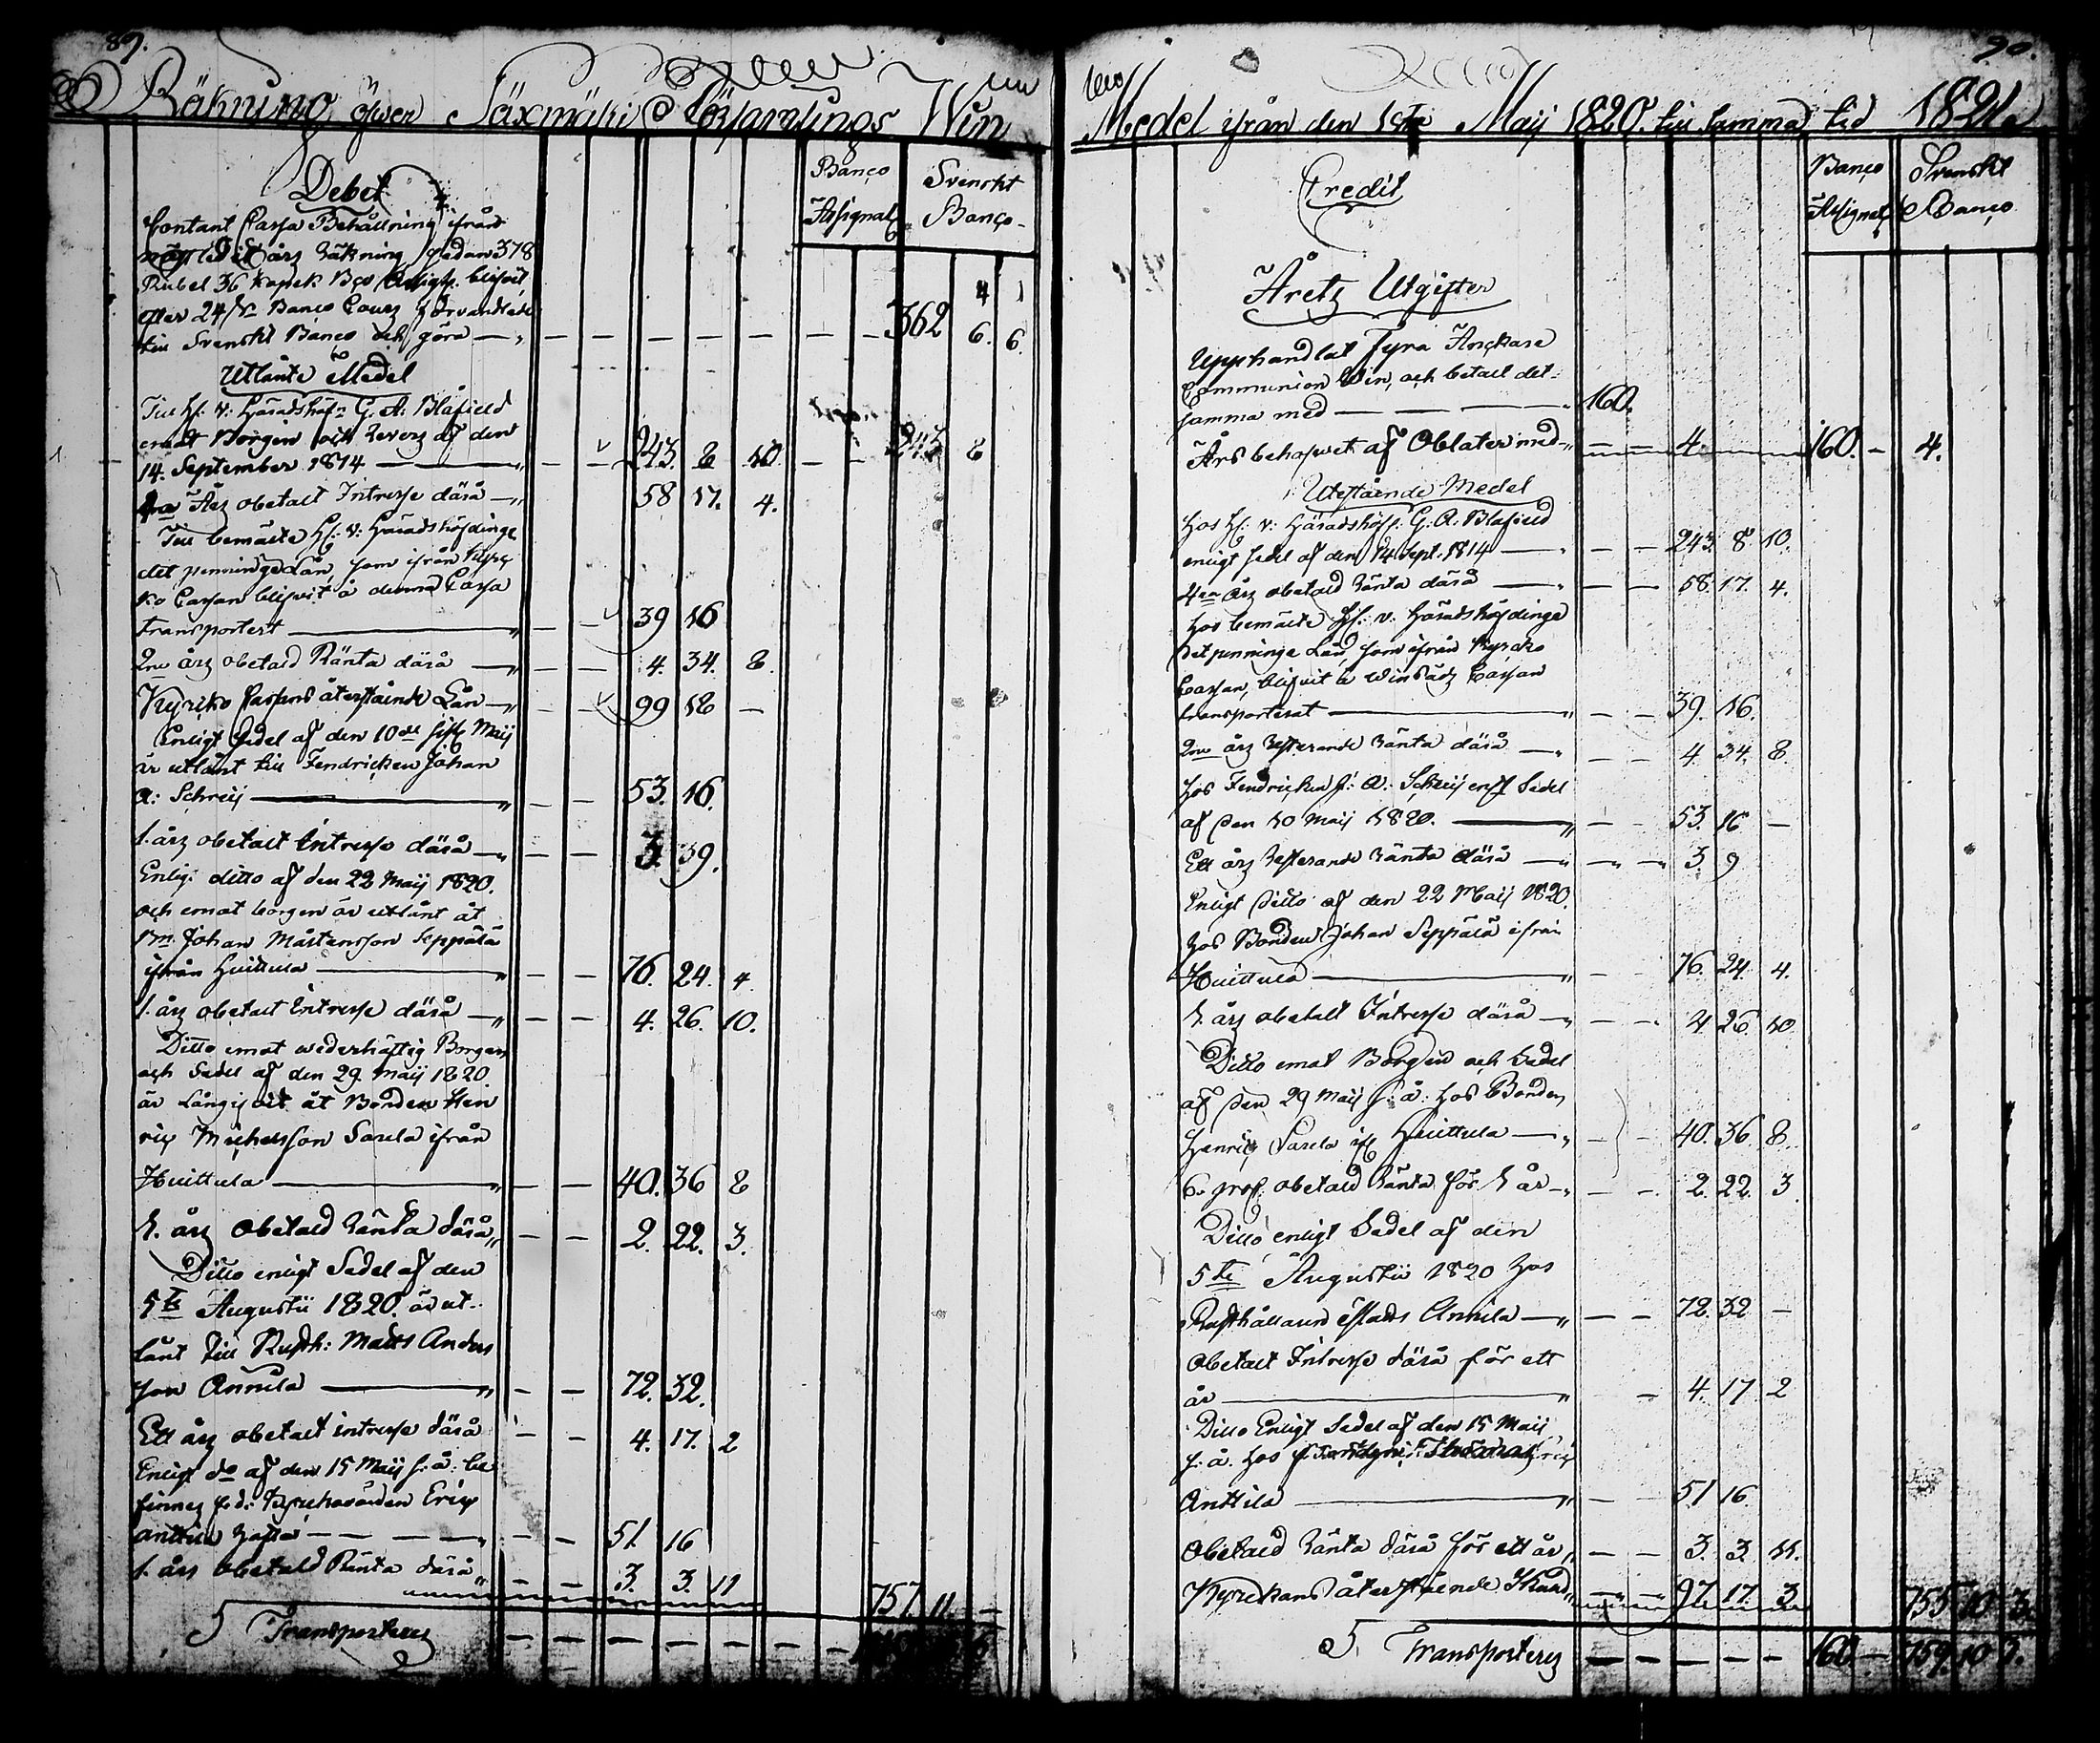 89.
Räkning öfwer Säxmäki Församlings Win
Debet
Banco Assignat.
Svenskt Banco
Contant Cassa Behållning ifrån
nästledit årz Räkning sedan 378
Rubel 36 kopek Bco Assign. blifvit
efter 24 Banco Cours förvandlade
till Svenskt Banco och göra 362 6. 6.
Utlånte Medel
Till H. v. Häradshöf. G. A. Blåfield
emot Borgen och Revers af den
14. September 1814 243. 8 10. 243 8
4ra Årz obetalt Intresse därå 58 17. 4.
Till bemälte H. v. Häradshöfdinge
det penningelån, som ifrån Kyrc
ko Cassan blifvit å denna Cassa
transportert 39 16
2ne årz obetald Ränta därå 4. 34. 8.
Kyrko Cassans återstående Lån 99 18 —
Enligt Sedel af den 10de Maij
är utlånt till Fendricken Johan
A: Schreij 53. 16.
1. årz obetalt Intresse därå 3. 39.
Enlig: ditto af den 22 Maij 1820.
och emot borgen är utlånt åt
Johan Mårtensson Seppälä
ifrån Huittula 76. 24. 4.
1. årz obetalt Intresse därå 4. 26. 10.
Ditto emot wederhäftig Borgen
och Sedel af den 29. Maij 1820.
är Långifvit åt Bonden Hen
ric Michelsson Sarela ifrån
Huittula 40. 36 8
1. årz obetald Ränta därå 2. 22. 3.
Ditto enligt Sedel af den
5te Augustii 1820. är ut-
lånt till Rusth: Matts Anders
son Annila 72. 32.
Ett årz obetalt intresse därå 4. 17. 2
Enligt do af den 15 Maij s: å: be
finnes f.d. Kyrckovärden Eric
Anttila häfta 51. 16
1. års obetald Ränta därå 3. 3. 11 757. 11 —
Transporteres
90.
Medel ifrån den 1sta Maij 1820. till samma tid 1821.
Credit
Banco Assignat.
Svenskt Banco
Åretz Utgifter
Upphandlat Fyra Anckare
Communion Win, och betalt det-
samma med 160.
Års behofwet af Oblater med 4. 160. — 4.
Utestående Medel
Hos H. v: Häradshöf: G: A: Blåfield
enligt sedel af den 14 Sept. 1814 243. 8 10.
4ra Årz obetald Ränta därå 58. 17. 4.
Hos bemälte H. v. Häradshöfdinge
det penninge Lån, som ifrån Kyrcko
Cassan, blifvit å Winsädz Cassan
transporterat 39. 16.
2ne årz Resterande Ränta därå 4. 34. 8.
Hos Fendricken J: A: Schreij enligt Sedel
af den 10 Maij 1820. 53. 16 —
Ett årz Resterande Ränta därå 3. 9
Enligt Ditto af den 22 Maij 1820.
hos Bonden Johan Seppälä ifrån
Huittula 76. 24. 4.
1. årz obetalt Intresse därå 4 26. 10.
Ditto emot Borgen och Sedel
af den 29 Maij s: å: hos Bonden
Henric Sarela Huittula 40. 36. 8
6. proc. obetald Ränta för 1 år 2. 22. 3
Ditto enligt Sedel af den
5te Augustii 1820 hos
Rusthållaren Matts Annila 72. 32 —
Obetalt Intresse därå för ett
år 4. 17 2
Ditto Enligt Sedel af den 15 Maij
s: å. hos
Anttila 51 16
Obetald Ränta därå för ett år 3. 3. 11.
Kyrckans återstående Skuld 97. 17. 3 755 10 3.
Transporteres 160. — 759. 10 3.